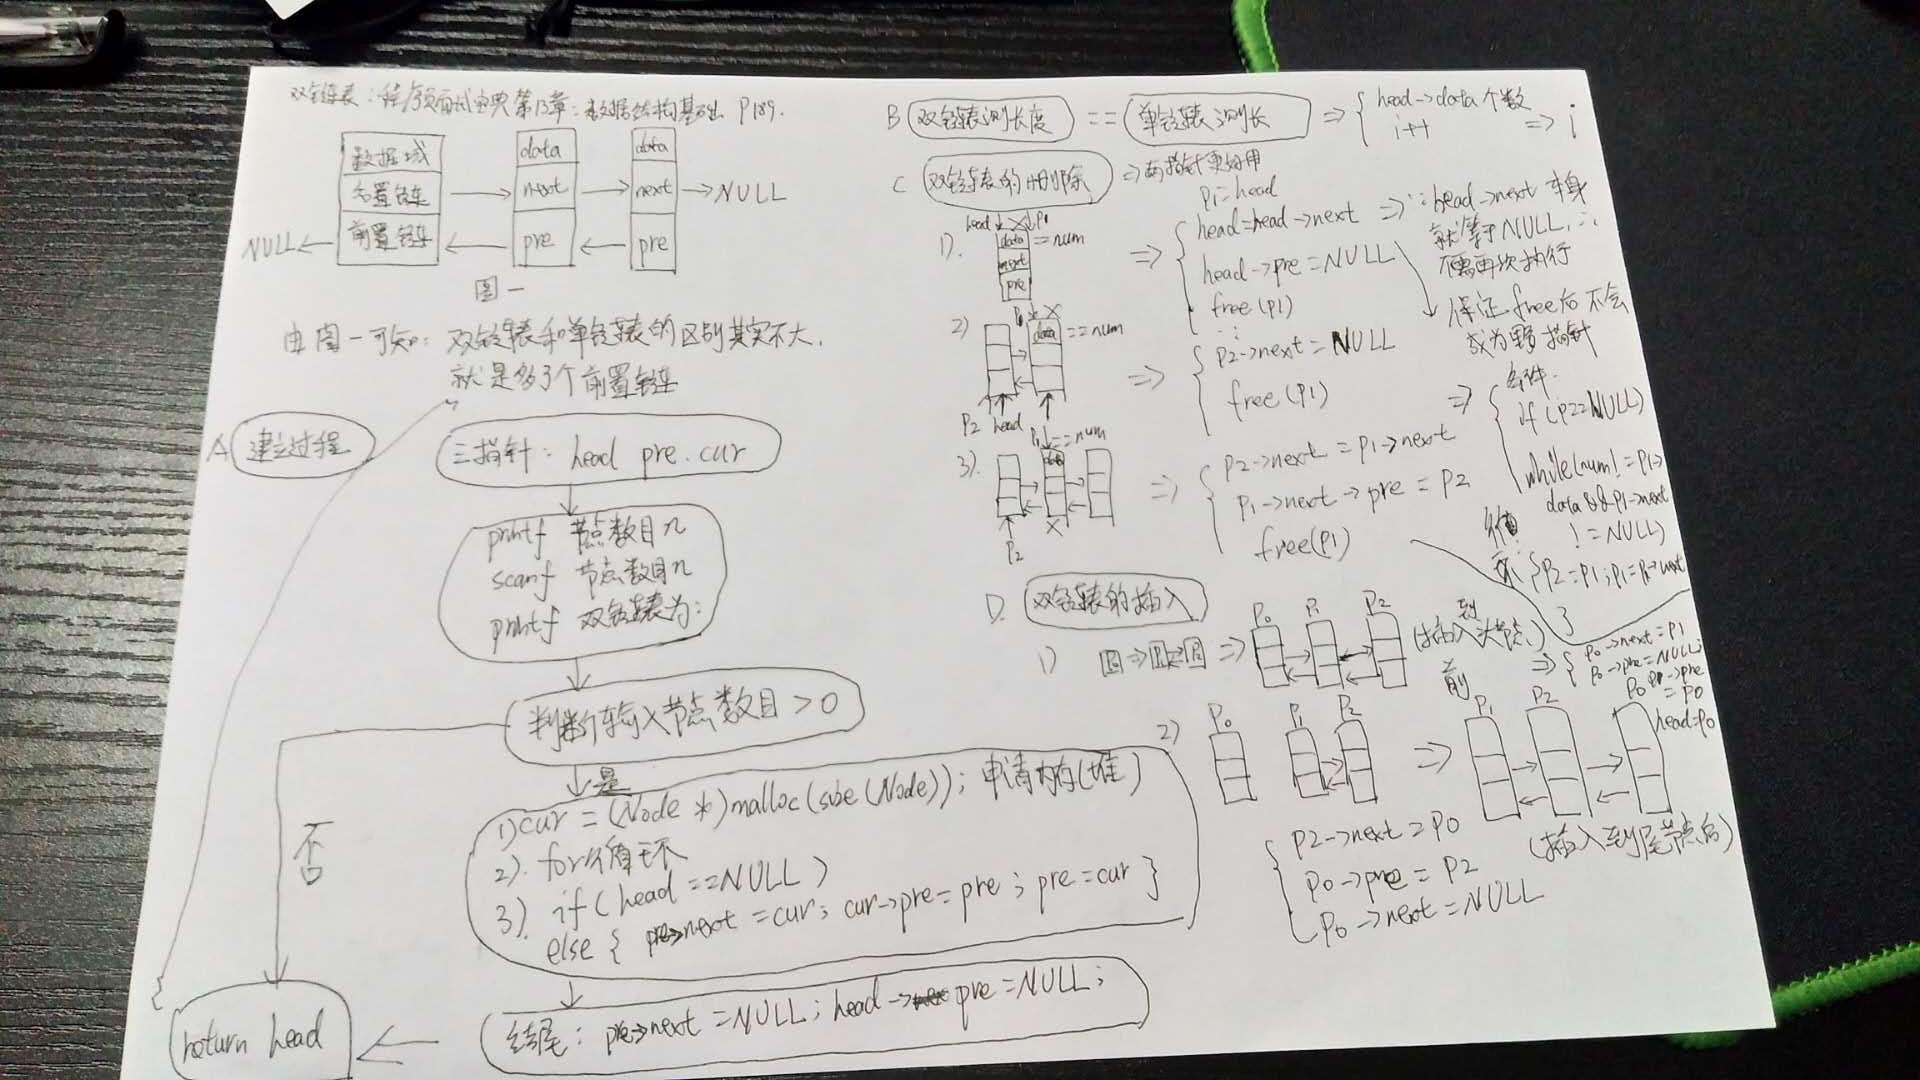 双链表：程序员面试宝典第13章：数据结构基础 P189.
数据域
后置链
前置链
data
next
pre
data
next
pre
NULL
NULL
图一
由图一可知：双链表和单链表的区别其实不大，
就是多了个前置链
A 建立过程
三指针：head pre. cur
printf 节点数目n
scanf 节点数目n
printf 双链表为：
判断输入节点数目>0
是
否
1) cur = (Node *) malloc (size (Node)); 申请内存(堆)
2). for 循环
3). if ( head == NULL )
else { pre->next = cur; cur->pre = pre ; pre = cur }
结尾：pre->next = NULL; head-> pre = NULL;
return head
B 双链表测长度 == 单链表测长 => { head->data 个数
i++ => i
C 双链表的删除 => 两指针更好用
P1=head
1). head P1
data == num
next
pre
head=head->next => ∵ head->next 本身
就等于NULL, ∴
不需再次执行
head->pre = NULL
free (P1)
保证 free后 不会
成为野指针
2) data == num
P2 head
P2->next = NULL
free (P1)
=> 条件.
if (P2==NULL)
while(num! = P1->
data && P1->next
! = NULL)
{P2=P1; P1=P1->next
}
3). P1 == num
data
P2
P2->next = P1->next
P1->next->pre = P2
free(P1)
D. 双链表的插入
1) P0 P1 P2 (插入到头节点
前)
=> { P0->next = P1
P0->pre = NULL;
P1->pre
= P0
head=P0
2) P0 P1 P2 => P1 P2
(插入到尾节点后)
P2->next = P0
P0->pre = P2
P0->next = NULL